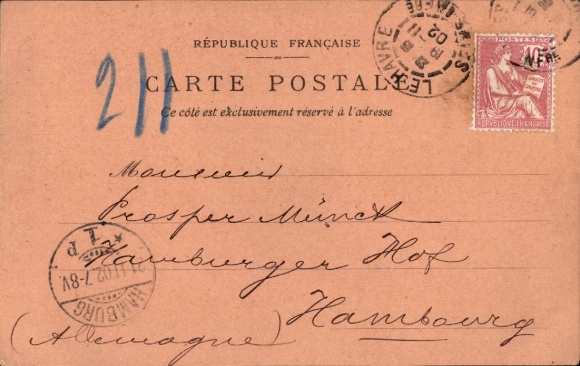 RÉPUBLIQUE FRANÇAISE
CARTE POSTALE
Ce côté est exclusivement réservé à l'adresse
211
LE HAVRE
02
POSTES
10
REPUBLIQUE FRANÇAISE
Monsieur
Prosper Münck
Hamburger Hof
Hambourg
(Allemagne)
HAMBURG
21.11.02.7-8V.
* 1.P